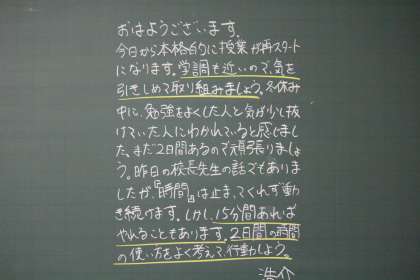 おはようございます。
今日から本格的に授業が再スタート
になります。学調も近いので、気を
引きしめて取り組みましょう。冬休み
中に、勉強をよくした人と気が少し抜
けていた人にわかれていると感じまし
た。まだ2日間あるので頑張りましょ
う。昨日の校長先生の話でもありま
したが、『時間』は止まってくれず動
き続けます。しかし、15分間あれば
やれることもあります。2日間の時間
の使い方をよく考えて、行動しよう。
浩介